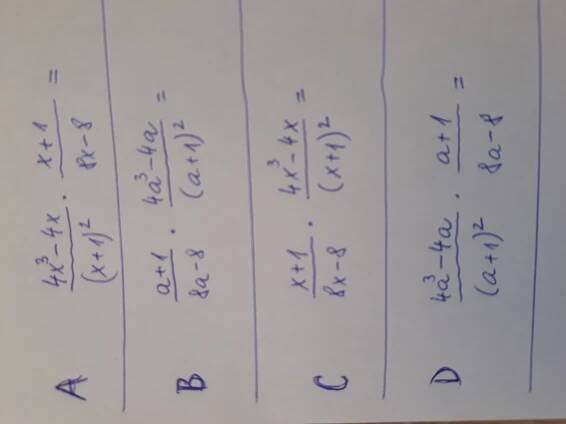 A (4x³-4x)/(x+1)² · (x+1)/(8x-8) =
B (a+1)/(8a-8) · (4a³-4a)/(a+1)² =
C (x+1)/(8x-8) · (4x³-4x)/(x+1)² =
D (4a³-4a)/(a+1)² · (a+1)/(8a-8) =